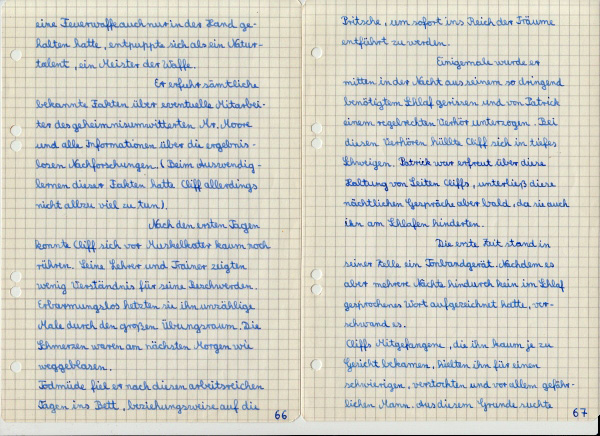 eine Feuerwaffe auch nur in der Hand ge-
halten hatte, entpuppte sich als ein Natur-
talent, ein Meister der Waffe.
Er erfuhr sämtliche
bekannte Fakten über eventuelle Mitarbei-
ter des geheimnisumwitterten Mr. Moore
und alle Informationen über die ergebnis-
losen Nachforschungen. (Beim Auswendig-
lernen dieser Fakten hatte Cliff allerdings
nicht allzu viel zu tun).
Nach den ersten Tagen
konnte Cliff sich vor Muskelkater kaum noch
rühren. Seine Lehrer und Trainer zeigten
wenig Verständnis für seine Beschwerden.
Erbarmungslos hetzten sie ihn unzählige
Male durch den großen Übungsraum. Die
Schmerzen waren am nächsten Morgen wie
weggeblasen.
Todmüde fiel er nach diesen arbeitsreichen
Tagen ins Bett, beziehungsweise auf die
66
Pritsche, um sofort ins Reich der Träume
entführt zu werden.
Einigemale wurde er
mitten in der Nacht aus seinem so dringend
benötigtem Schlaf gerissen und von Patrick
einem regelrechten Verhör unterzogen. Bei
diesen Verhören hüllte Cliff sich in tiefes
Schweigen. Patrick war erfreut über diese
Haltung von Seiten Cliffs, unterließ diese
nächtlichen Gespräche aber bald, da sie auch
ihn am Schlafen hinderten.
Die erste Zeit stand in
seiner Zelle ein Tonbandgerät. Nachdem es
aber mehrere Nächte hindurch kein im Schlaf
gesprochenes Wort aufgezeichnet hatte, ver-
schwand es.
Cliffs Mitgefangene, die ihn kaum je zu
Gesicht bekamen, hielten ihn für einen
schwierigen, verstockten und vor allem gefähr-
lichen Mann. Aus diesem Grunde suchte
67